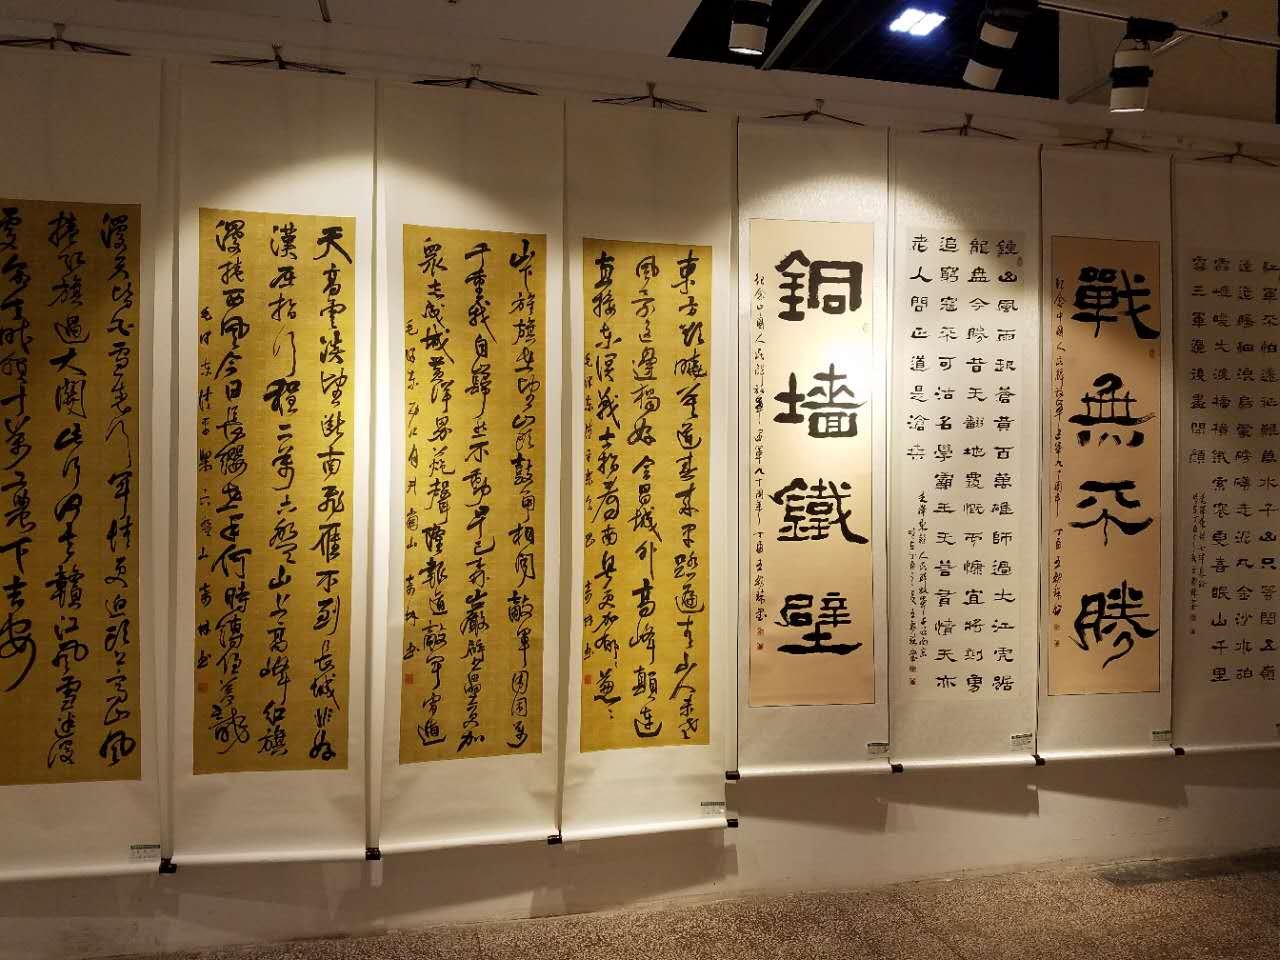 紅軍不怕遠征難萬水千山只等閒五嶺
逶迤騰細浪烏蒙磅礴走泥丸金沙水拍
雲崖暖大渡橋橫鐵索寒更喜岷山千里
雪三軍過後盡開顏
戰無不勝
紀念中國人民解放軍建軍九十周年 丁酉
鍾山風雨起蒼黃百萬雄師過大江虎踞
龍盤今勝昔天翻地覆慨而慷宜將剩勇
追窮寇不可沽名學霸王天若有情天亦
老人間正道是滄桑
銅墻鐵壁
紀念中國人民解放軍建軍九十周年 丁酉
東方欲曉莫道君行早踏遍青山人未老
風景這邊獨好會昌城外高峰顛連
直接東溟戰士指看南粵更加鬱鬱葱葱
山下旌旗在望山頭鼓角相聞敵軍圍困萬
千重我自巋然不動早已森嚴壁壘更加
眾志成城黃洋界炮聲隆報道敵軍宵遁
天高雲淡望斷南飛雁不到長城非好
漢屈指行程二萬六盤山上高峰紅旗
漫捲西風今日長纓在手何時縛住蒼龍
毛澤東清平樂六盤山
漫天皆白雪裏行軍情更迫頭上高山風
捲紅旗過大關此行何去贛江風雪迷漫
處命令昨頒十萬工農下吉安